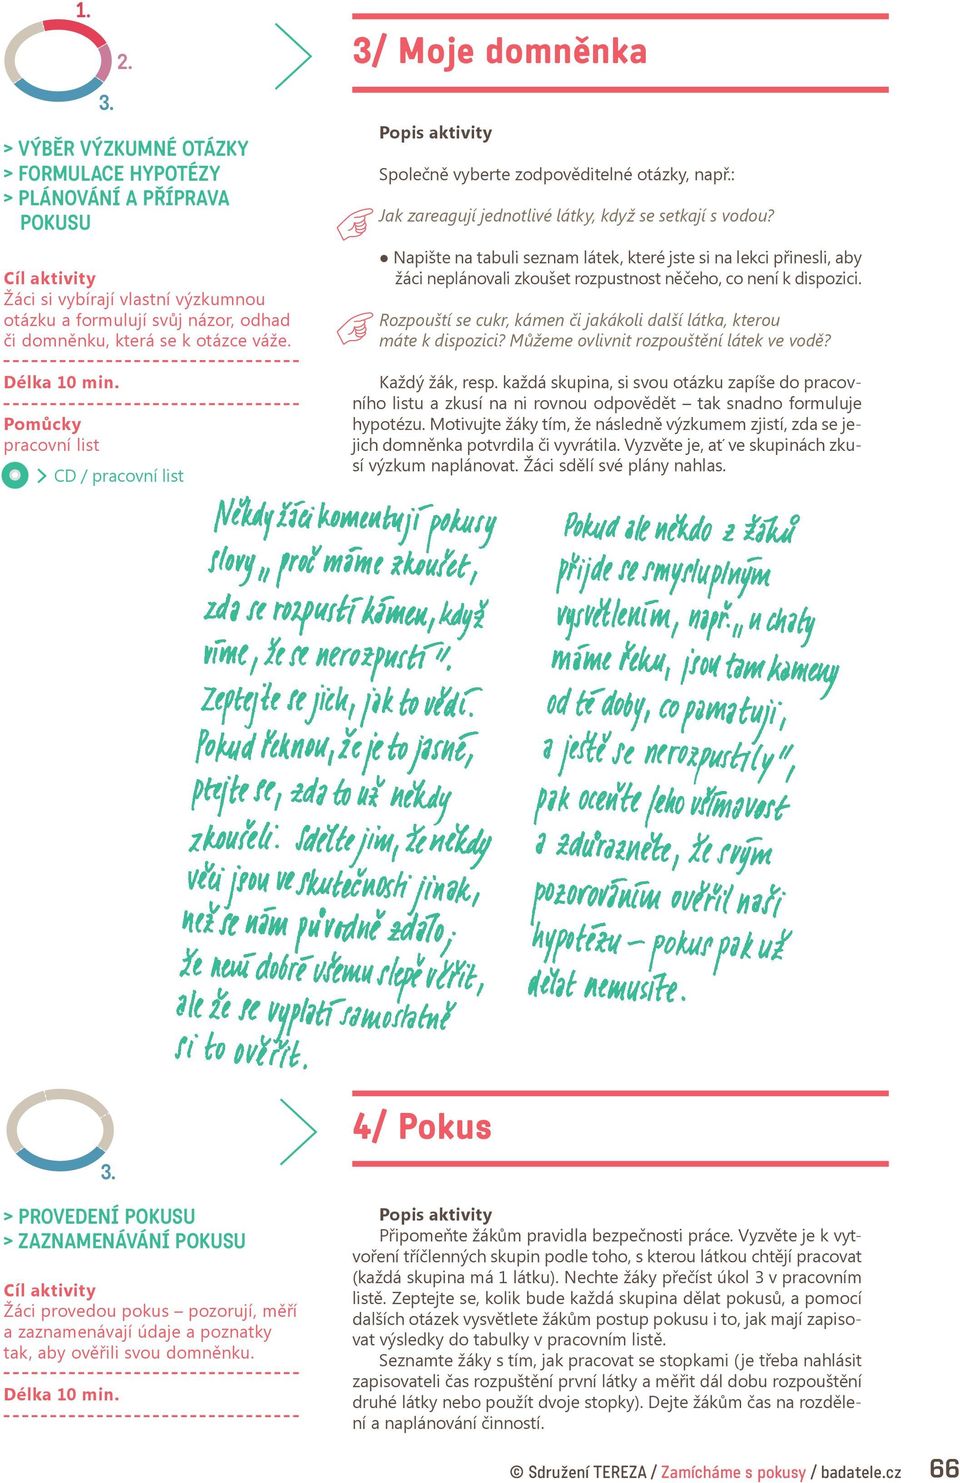 1.
2.
3.
> VÝBĚR VÝZKUMNÉ OTÁZKY
> FORMULACE HYPOTÉZY
> PLÁNOVÁNÍ A PŘÍPRAVA
POKUSU
Cíl aktivity
Žáci si vybírají vlastní výzkumnou
otázku a formulují svůj názor, odhad
či domněnku, která se k otázce váže.
Délka 10 min.
Pomůcky
pracovní list
> CD / pracovní list
3/ Moje domněnka
Popis aktivity
Společně vyberte zodpověditelné otázky, např.:
Jak zareagují jednotlivé látky, když se setkají s vodou?
● Napište na tabuli seznam látek, které jste si na lekci přinesli, aby
žáci neplánovali zkoušet rozpustnost něčeho, co není k dispozici.
Rozpouští se cukr, kámen či jakákoli další látka, kterou
máte k dispozici? Můžeme ovlivnit rozpouštění látek ve vodě?
Každý žák, resp. každá skupina, si svou otázku zapíše do pracov-
ního listu a zkusí na ni rovnou odpovědět – tak snadno formuluje
hypotézu. Motivujte žáky tím, že následně výzkumem zjistí, zda se je-
jich domněnka potvrdila či vyvrátila. Vyzvěte je, ať ve skupinách zku-
sí výzkum naplánovat. Žáci sdělí své plány nahlas.
Někdy žáci komentují pokusy
slovy „proč máme zkoušet,
zda se rozpustí kámen, když
víme, že se nerozpustí".
Zeptejte se jich, jak to vědí.
Pokud řeknou, že je to jasné,
ptejte se, zda to už někdy
zkoušeli. Sdělte jim, že někdy
věci jsou ve skutečnosti jinak,
než se nám původně zdálo;
že není dobré všemu slepě věřit,
ale že se vyplatí samostatně
si to ověřit.
Pokud ale někdo z žáků
přijde se smysluplným
vysvětlením, např. „u chaty
máme řeku, jsou tam kameny
od té doby, co pamatuji,
a ještě se nerozpustily",
pak oceňte jeho všímavost
a zdůrazněte, že svým
pozorováním ověřil naši
hypotézu – pokus pak už
dělat nemusíte.
3.
> PROVEDENÍ POKUSU
> ZAZNAMENÁVÁNÍ POKUSU
Cíl aktivity
Žáci provedou pokus – pozorují, měří
a zaznamenávají údaje a poznatky
tak, aby ověřili svou domněnku.
Délka 10 min.
4/ Pokus
Popis aktivity
Připomeňte žákům pravidla bezpečnosti práce. Vyzvěte je k vyt-
voření tříčlenných skupin podle toho, s kterou látkou chtějí pracovat
(každá skupina má 1 látku). Nechte žáky přečíst úkol 3 v pracovním
listě. Zeptejte se, kolik bude každá skupina dělat pokusů, a pomocí
dalších otázek vysvětlete žákům postup pokusu i to, jak mají zapiso-
vat výsledky do tabulky v pracovním listě.
Seznamte žáky s tím, jak pracovat se stopkami (je třeba nahlásit
zapisovateli čas rozpuštění první látky a měřit dál dobu rozpouštění
druhé látky nebo použít dvoje stopky). Dejte žákům čas na rozděle-
ní a naplánování činností.
© Sdružení TEREZA / Zamícháme s pokusy / badatele.cz 66